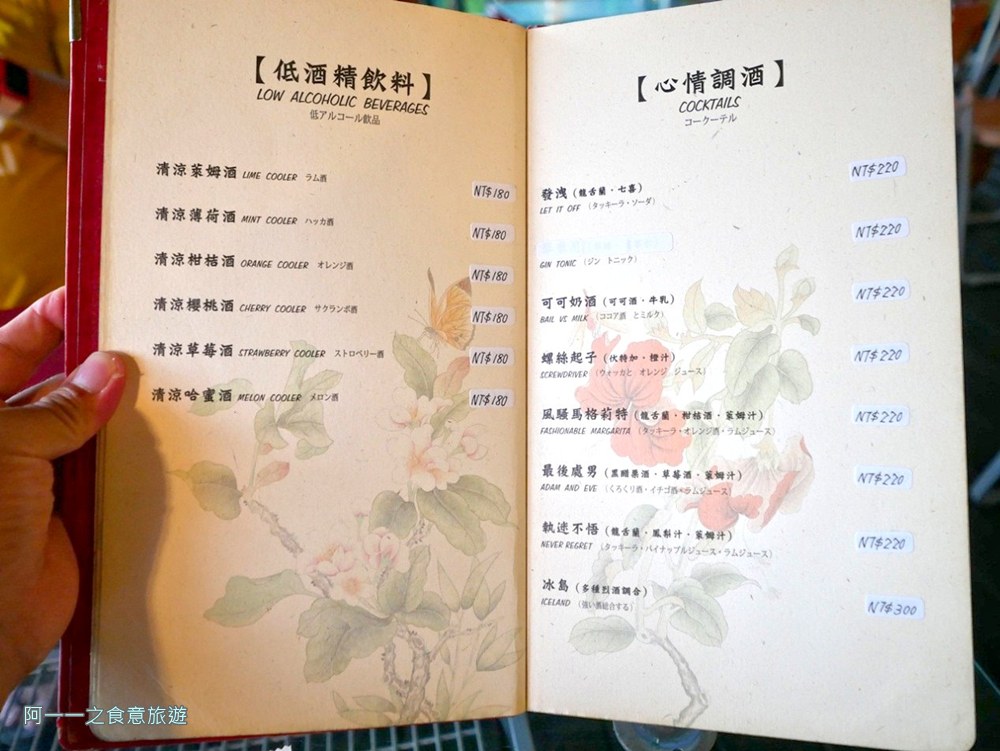 【低酒精飲料】
LOW ALCOHOLIC BEVERAGES
低アルコール飲品
清涼萊姆酒 LIME COOLER ラム酒 NT$180
清涼薄荷酒 MINT COOLER ハッカ酒 NT$180
清涼柑桔酒 ORANGE COOLER オレンジ酒 NT$180
清涼櫻桃酒 CHERRY COOLER サクランボ酒 NT$180
清涼草莓酒 STRAWBERRY COOLER ストロベリー酒 NT$180
清涼哈蜜酒 MELON COOLER メロン酒 NT$180
【心情調酒】
COCKTAILS
コークーテル
發洩（龍舌蘭・七喜） NT$220
LET IT OFF （タッキーラ・ソーダ）
NT$220
GIN TONIC （ジン トニック）
可可奶酒（可可酒・牛乳） NT$220
BAIL VS MILK （ココア酒 とミルク）
螺絲起子（伏特加・橙汁） NT$220
SCREWDRIVER （ウォッカと オレンジ ジュース）
風騷馬格莉特（龍舌蘭・柑桔酒・萊姆汁） NT$220
FASHIONABLE MARGARITA （タッキーラ・オレンジ酒・ラムジュース）
最後處男（黑醋栗酒・草莓酒・萊姆汁） NT$220
ADAM AND EVE （くろくり酒・イチゴ酒・ラムジュース
執迷不悟（龍舌蘭・鳳梨汁・萊姆汁） NT$220
NEVER REGRET （タッキーラ・パイナップルジュース・ラムジュース）
冰島（多種烈酒調合） NT$300
ICELAND （強い酒総合する）
阿一一之食意旅遊